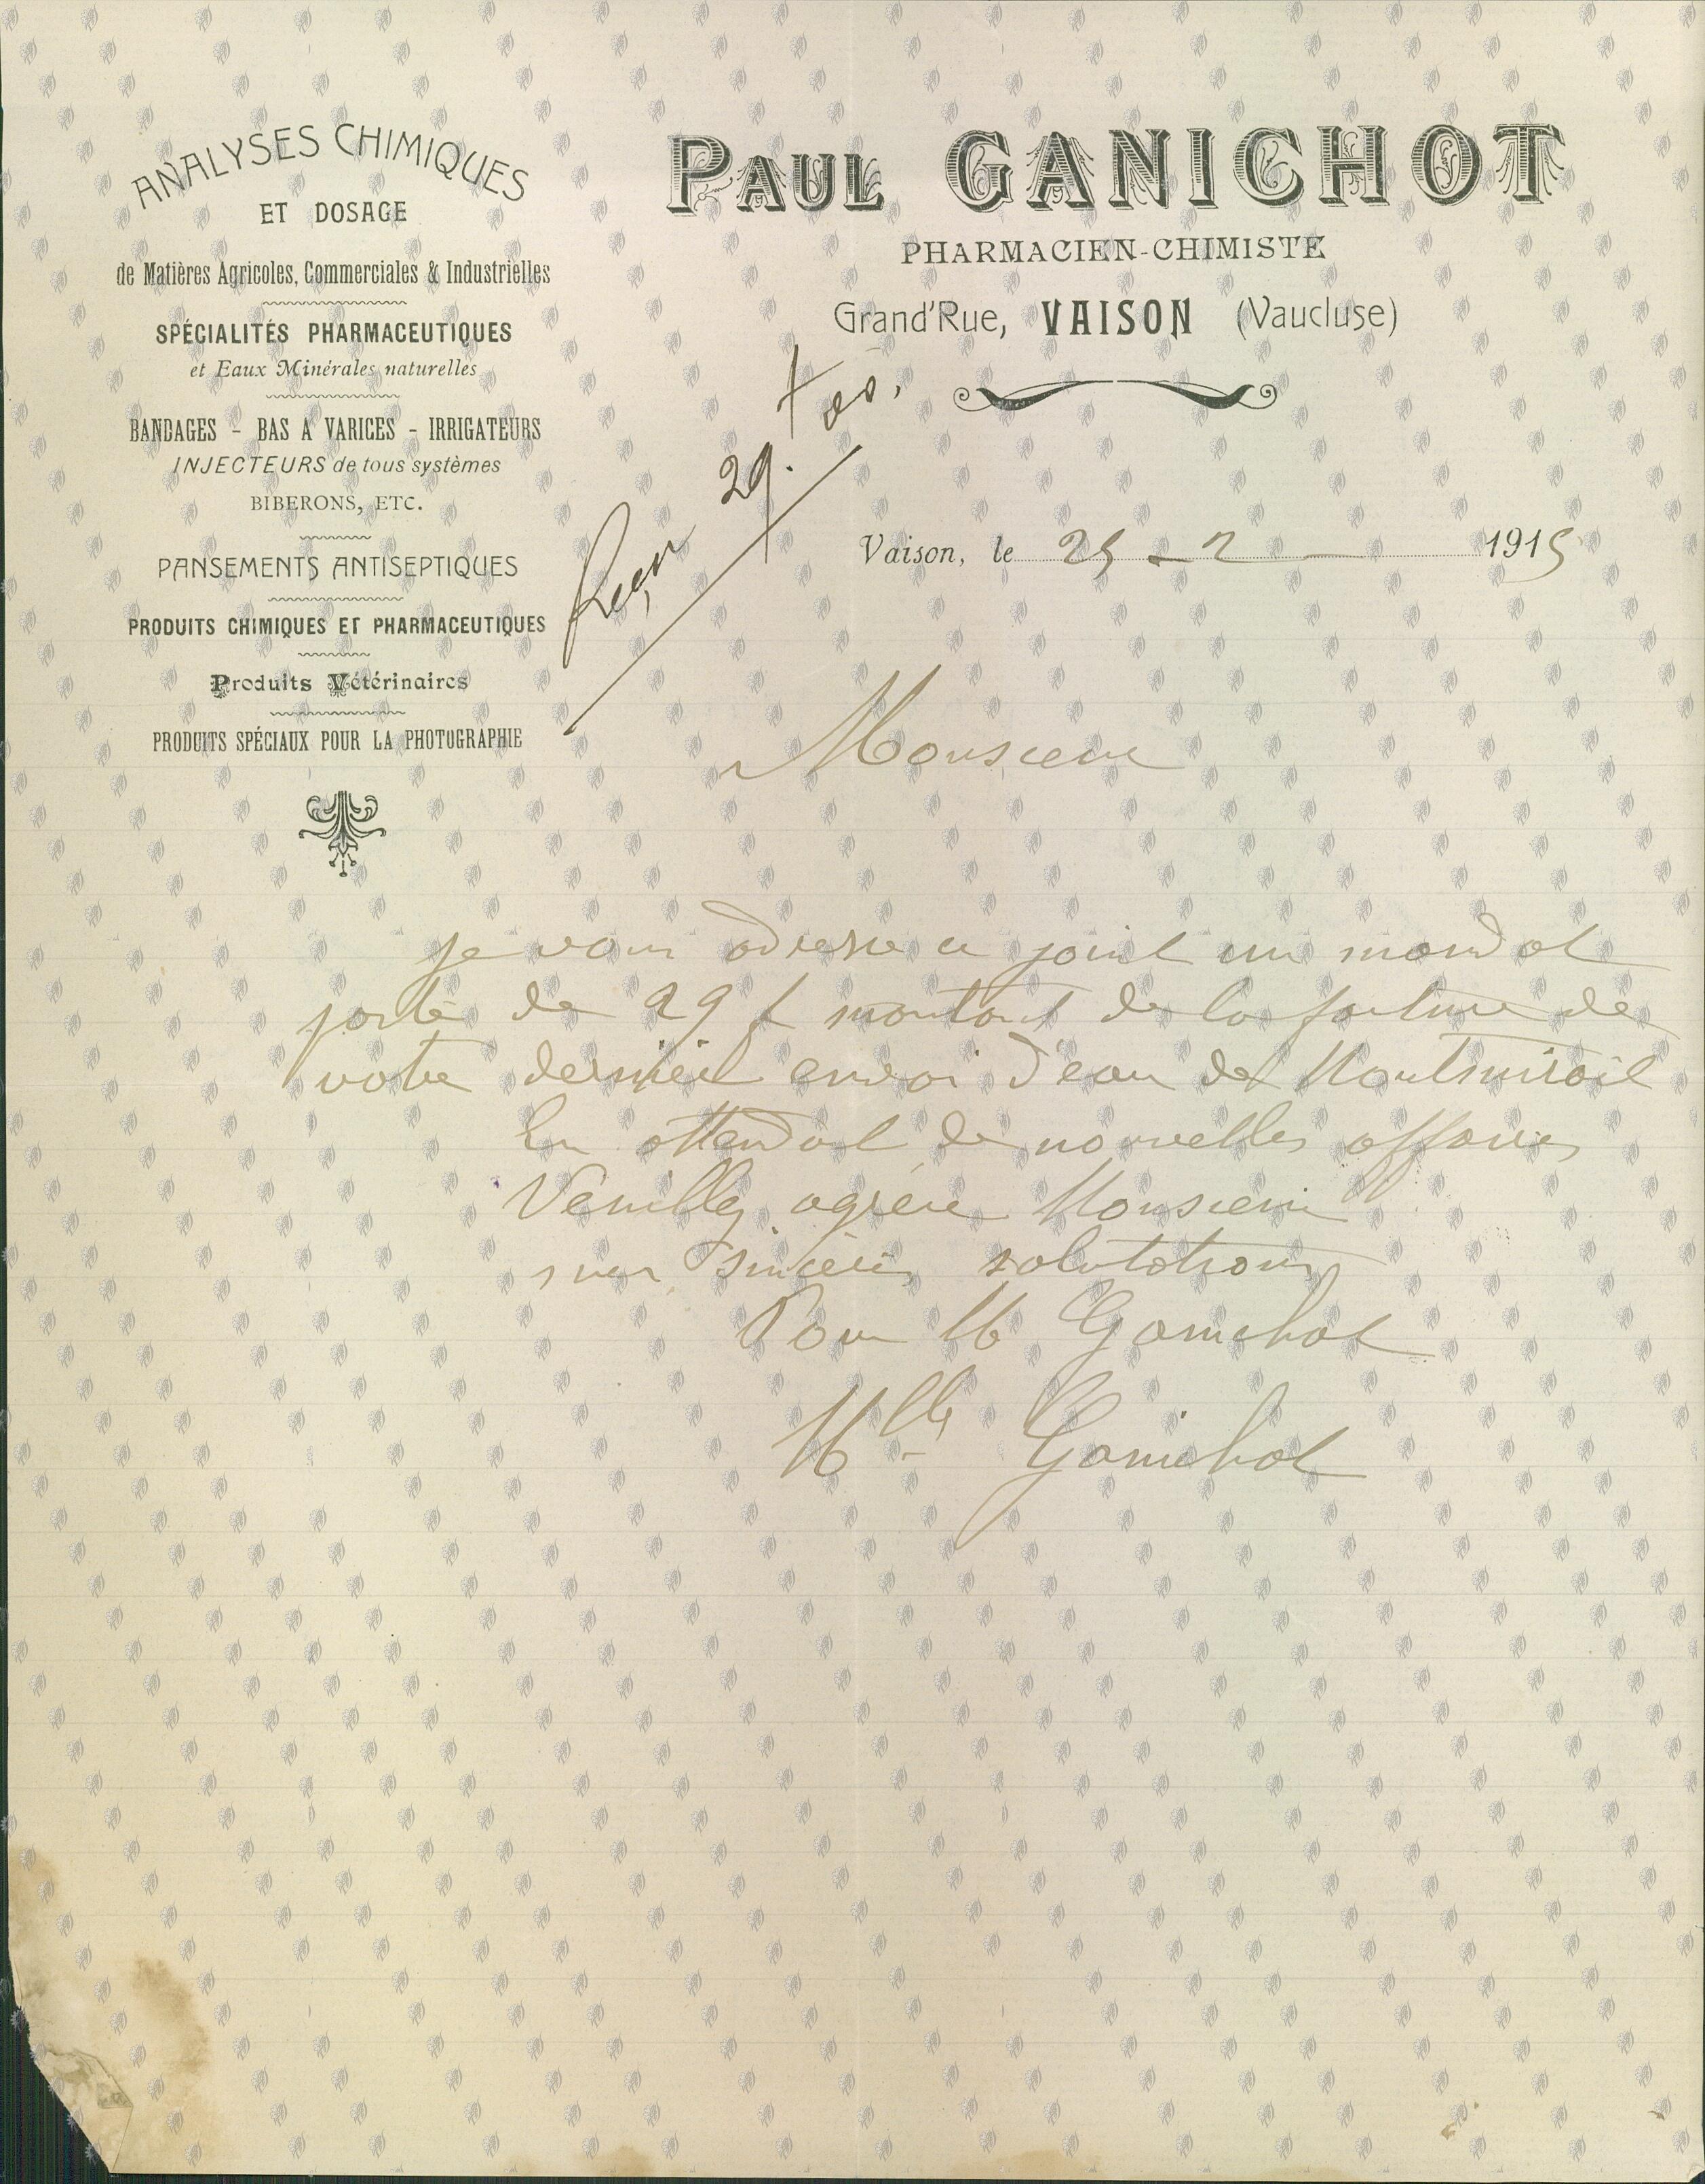 ANALYSES CHIMIQUES
ET DOSAGE
de Matières Agricoles, Commerciales & Industrielles
SPÉCIALITÉS PHARMACEUTIQUES
et Eaux Minérales naturelles
BANDAGES - BAS A VARICES - IRRIGATEURS
INJECTEURS de tous systèmes
BIBERONS, ETC.
PANSEMENTS ANTISEPTIQUES
PRODUITS CHIMIQUES ET PHARMACEUTIQUES
Produits Vétérinaires
PRODUITS SPÉCIAUX POUR LA PHOTOGRAPHIE
PAUL GANICHOT
PHARMACIEN-CHIMISTE
Grand'Rue, VAISON (Vaucluse)
Reçu 29.
Vaison, le 25 - 2 - 1915
Monsieur
je vous adresse ci joint un mandat
poste de 29 f montant de la facture de
votre dernier envoi d'eau de Montmirail
En attendant de nouvelles affaires
Veuillez agréer Monsieur
mes sincères salutations
Pour M Ganichot
Mlle Ganichot